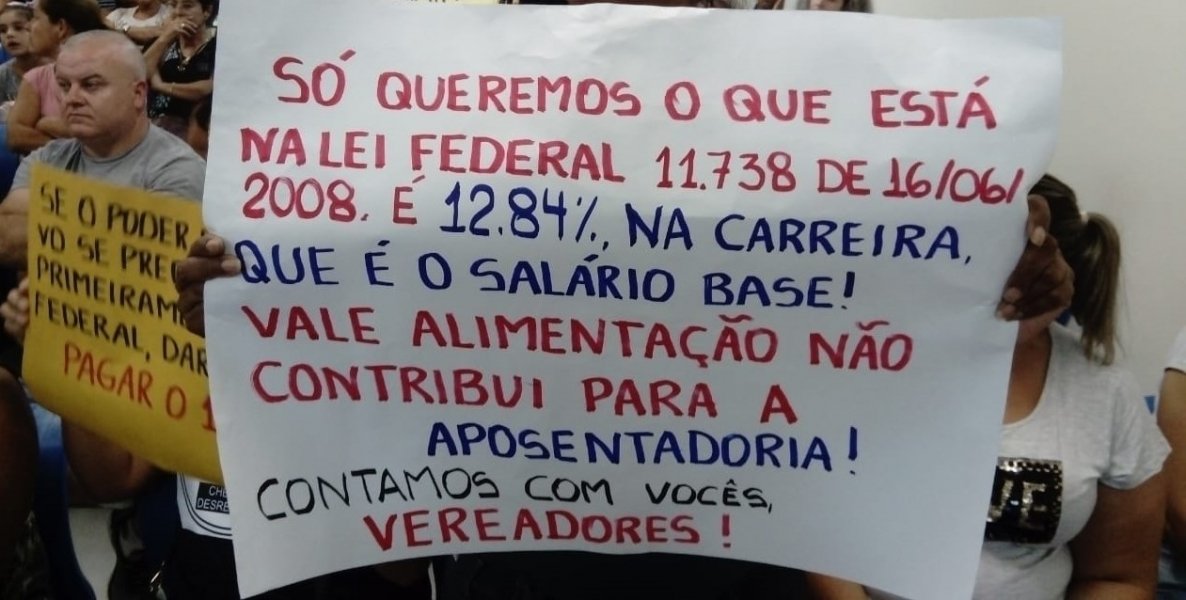 SÓ QUEREMOS O QUE ESTÁ
NA LEI FEDERAL 11.738 DE 16/06/
2008. É 12.84%, NA CARREIRA,
QUE É O SALÁRIO BASE!
VALE ALIMENTAÇÃO NÃO
CONTRIBUI PARA A
APOSENTADORIA!
CONTAMOS COM VOCÊS,
VEREADORES!
SE O PODER
VO SE
FEDERAL, DAR
PAGAR O 1